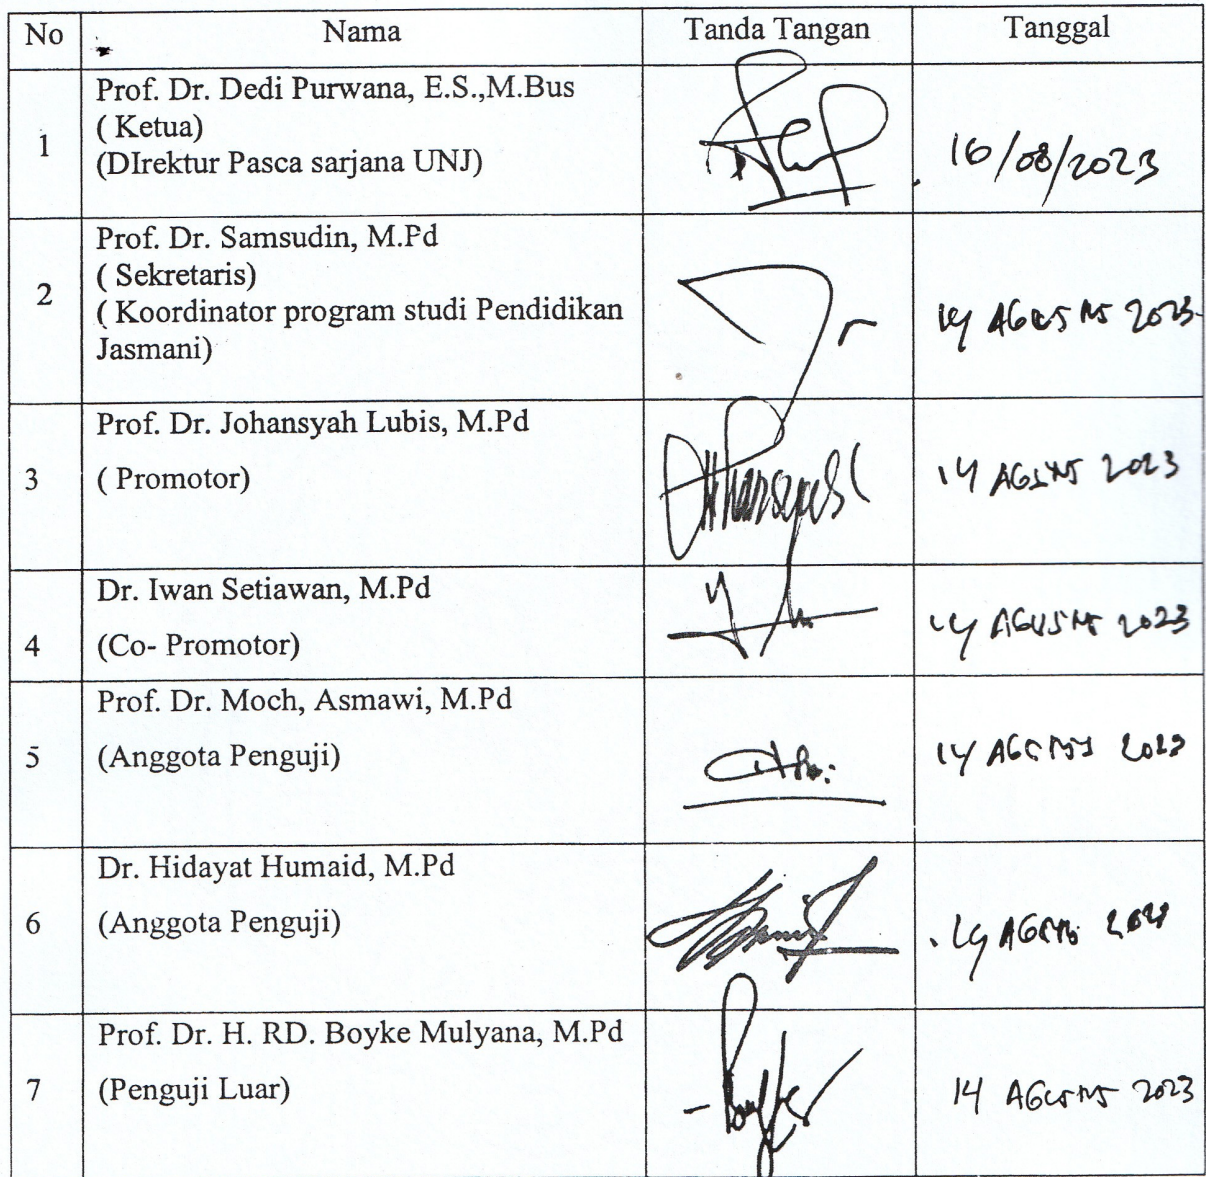 No Nama Tanda Tangan Tanggal
Prof. Dr. Dedi Purwana, E.S.,M.Bus
( Ketua)
1 16/08/2023
(DIrektur Pasca sarjana UNJ)
Prof. Dr. Samsudin, M.Pd
( Sekretaris)
2
( Koordinator program studi Pendidikan 14 AGUSTUS 2023
Jasmani)
Prof. Dr. Johansyah Lubis, M.Pd
3 ( Promotor) 14 AGUSTUS 2023
Dr. Iwan Setiawan, M.Pd
4 (Co- Promotor) 14 AGUSTUS 2023
Prof. Dr. Moch, Asmawi, M.Pd
5 (Anggota Penguji) 14 AGUSTUS 2023
Dr. Hidayat Humaid, M.Pd
6 (Anggota Penguji) 14 AGUSTUS 2023
Prof. Dr. H. RD. Boyke Mulyana, M.Pd
7 (Penguji Luar) 14 AGUSTUS 2023